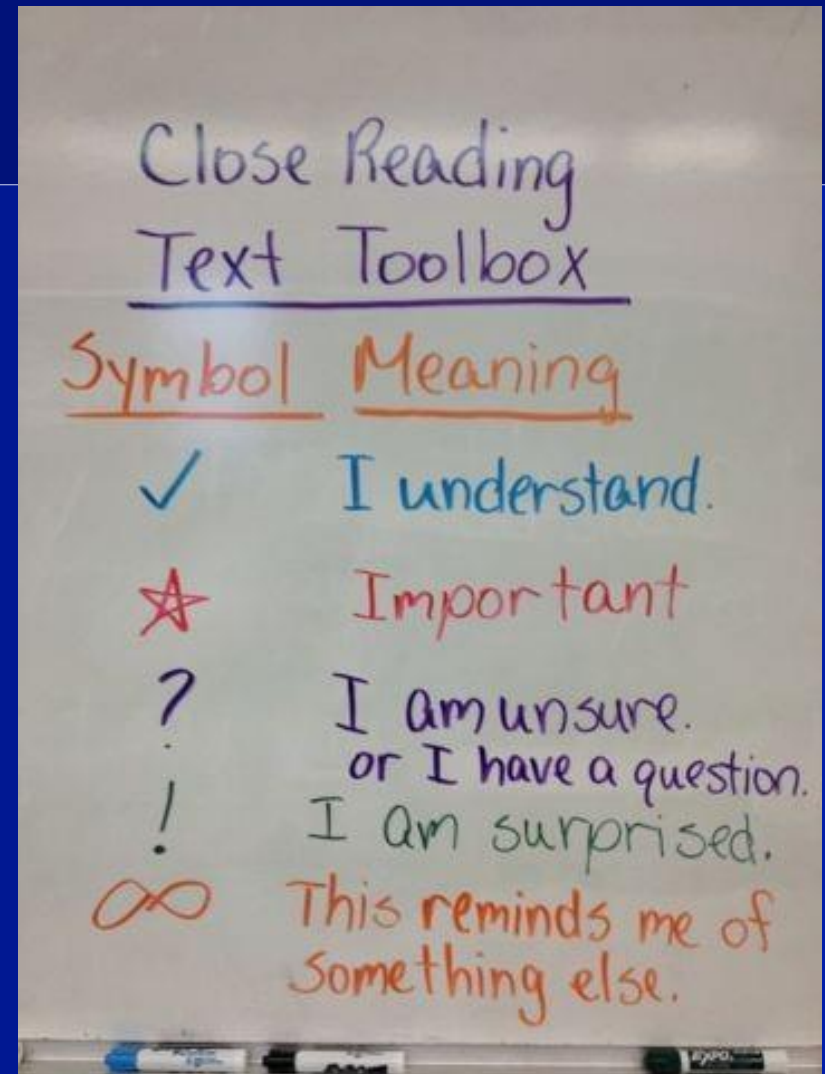 Close Reading
Text Toolbox
Symbol Meaning
✓ I understand.
☆ Important
? I am unsure.
or I have a question.
! I am surprised.
∞ This reminds me of
something else.
EXPO